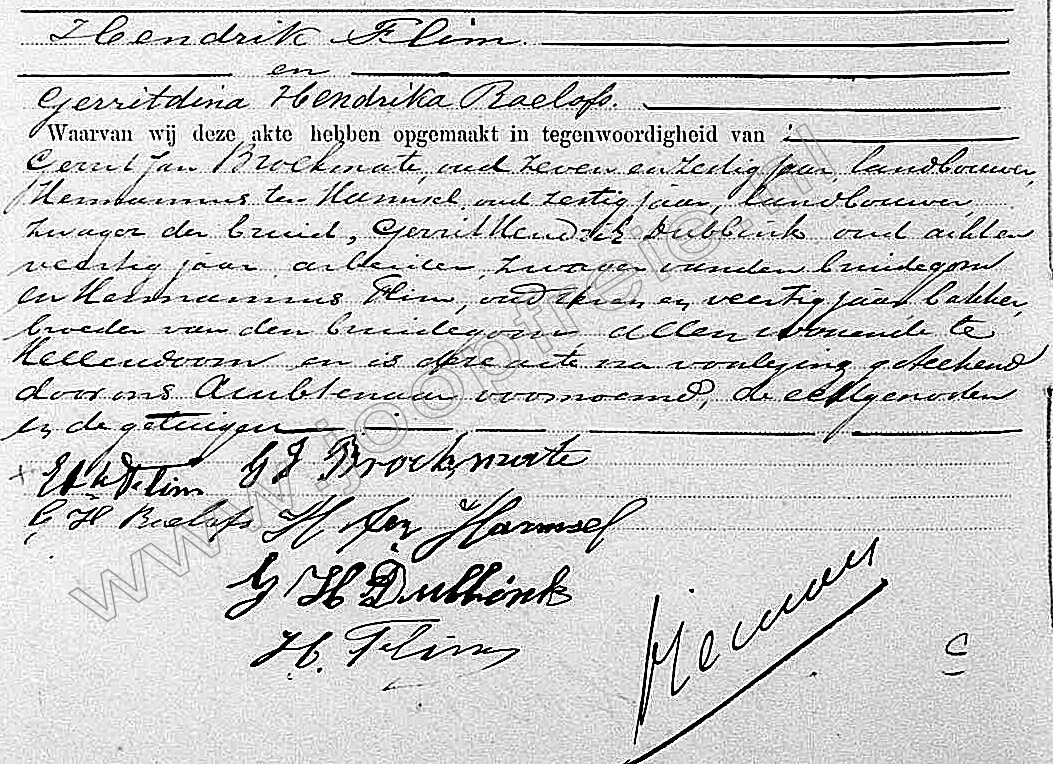 Hendrik Flim
en
Gerritdina Hendrika Roelofs.
Waarvan wij deze akte hebben opgemaakt in tegenwoordigheid van :
Gerrit Jan Broekmate, oud zeven en zestig jaar, landbouwer,
Hermannus ten Harmsel, oud zestig jaar, landbouwer,
zwager der bruid, Gerrit Hendrik Dubbink oud acht en
veertig jaar, arbeider, zwager van den bruidegom
en Hermannus Flim, oud een en veertig jaar, bakker,
broeder van den bruidegom, allen wonende te
Hellendoorn en is deze acte na voorlezing geteekend
door ons Ambtenaar voornoemd, de echtgenooten
en de getuigen
Flim G J Broekmate
G H Roelofs H ten Harmsel
G H Dubbink
H. Flim
www.joopfreio.nl